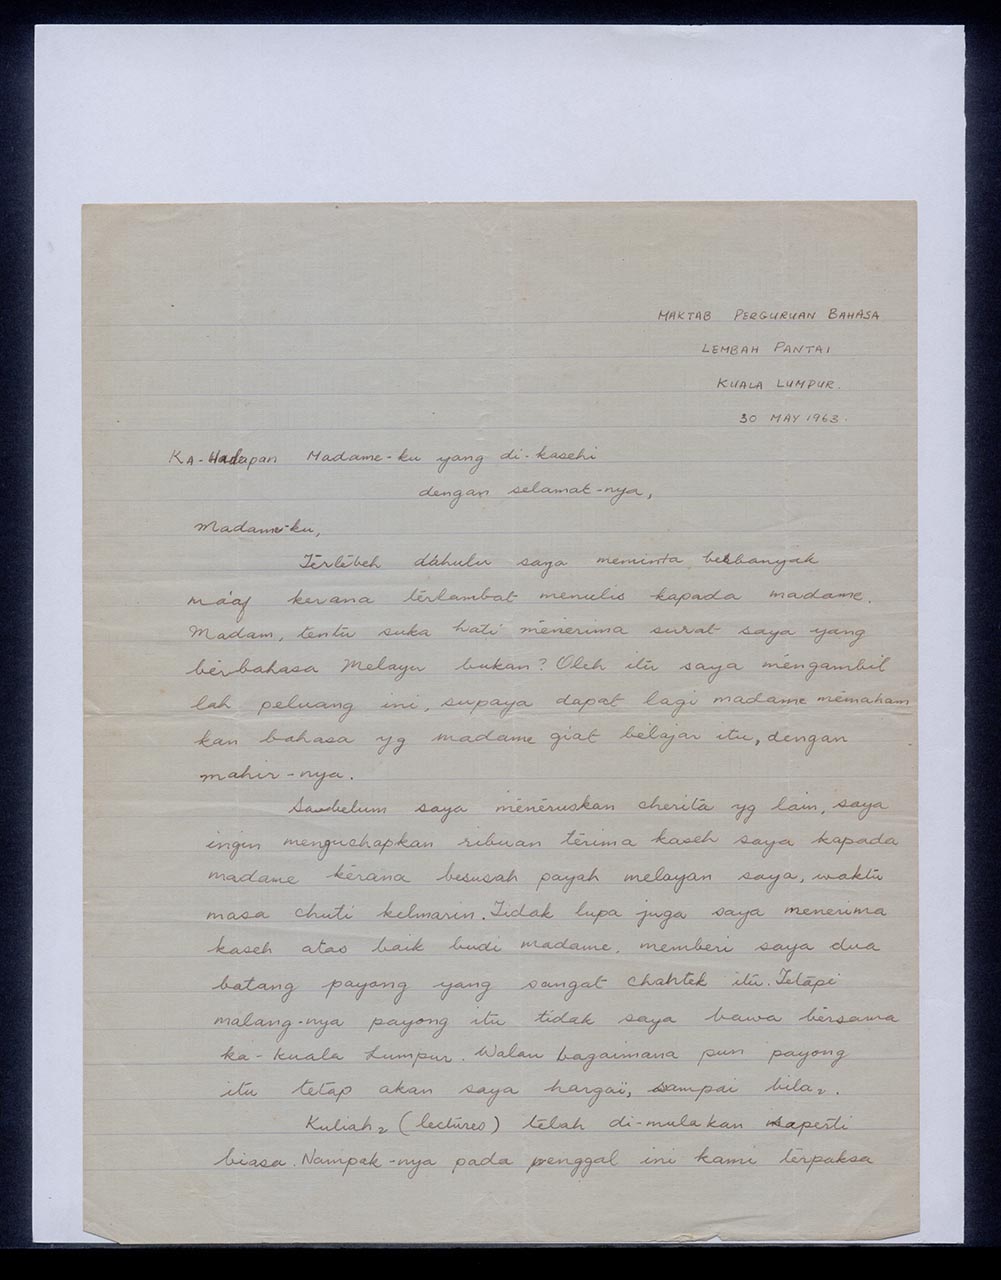 MAKTAB PERGURUAN BAHASA
LEMBAH PANTAI
KUALA LUMPUR.
30 MAY 1963.
KA-Hadapan Madame-ku yang di-kasehi
dengan selamat-nya,
Madame-ku,
Tĕrlĕbeh dahulu saya meminta berbanyak
ma'af kerana tĕrlambat menulis kapada madame.
Madam, tentu suka hati mĕnerima surat saya yang
bĕrbahasa Melayu bukan? Oleh itu saya mĕngambil
lah peluang ini, supaya dapat lagi madame mĕmaham
kan bahasa yg madame giat bĕlajar itu, dengan
mahir-nya.
Sabelum saya mĕnĕruskan cherita yg lain, saya
ingin menguchapkan ribuan tĕrima kaseh saya kapada
madame kĕrana besusah payah melayan saya, waktu
masa chuti kelmarin. Tidak lupa juga saya menerima
kaseh atas baik budi madame, memberi saya dua
batang payong yang sangat chantek itu. Tetapi
malang-nya payong itu tidak saya bawa bĕrsama
ka-Kuala Lumpur. Walau bagaimana pun payong
itu tetap akan saya hargaï, sampai bila2.
Kuliah2 (lectures) telah di-mulakan saperti
biasa. Nampak-nya pada penggal ini kami tĕrpaksa